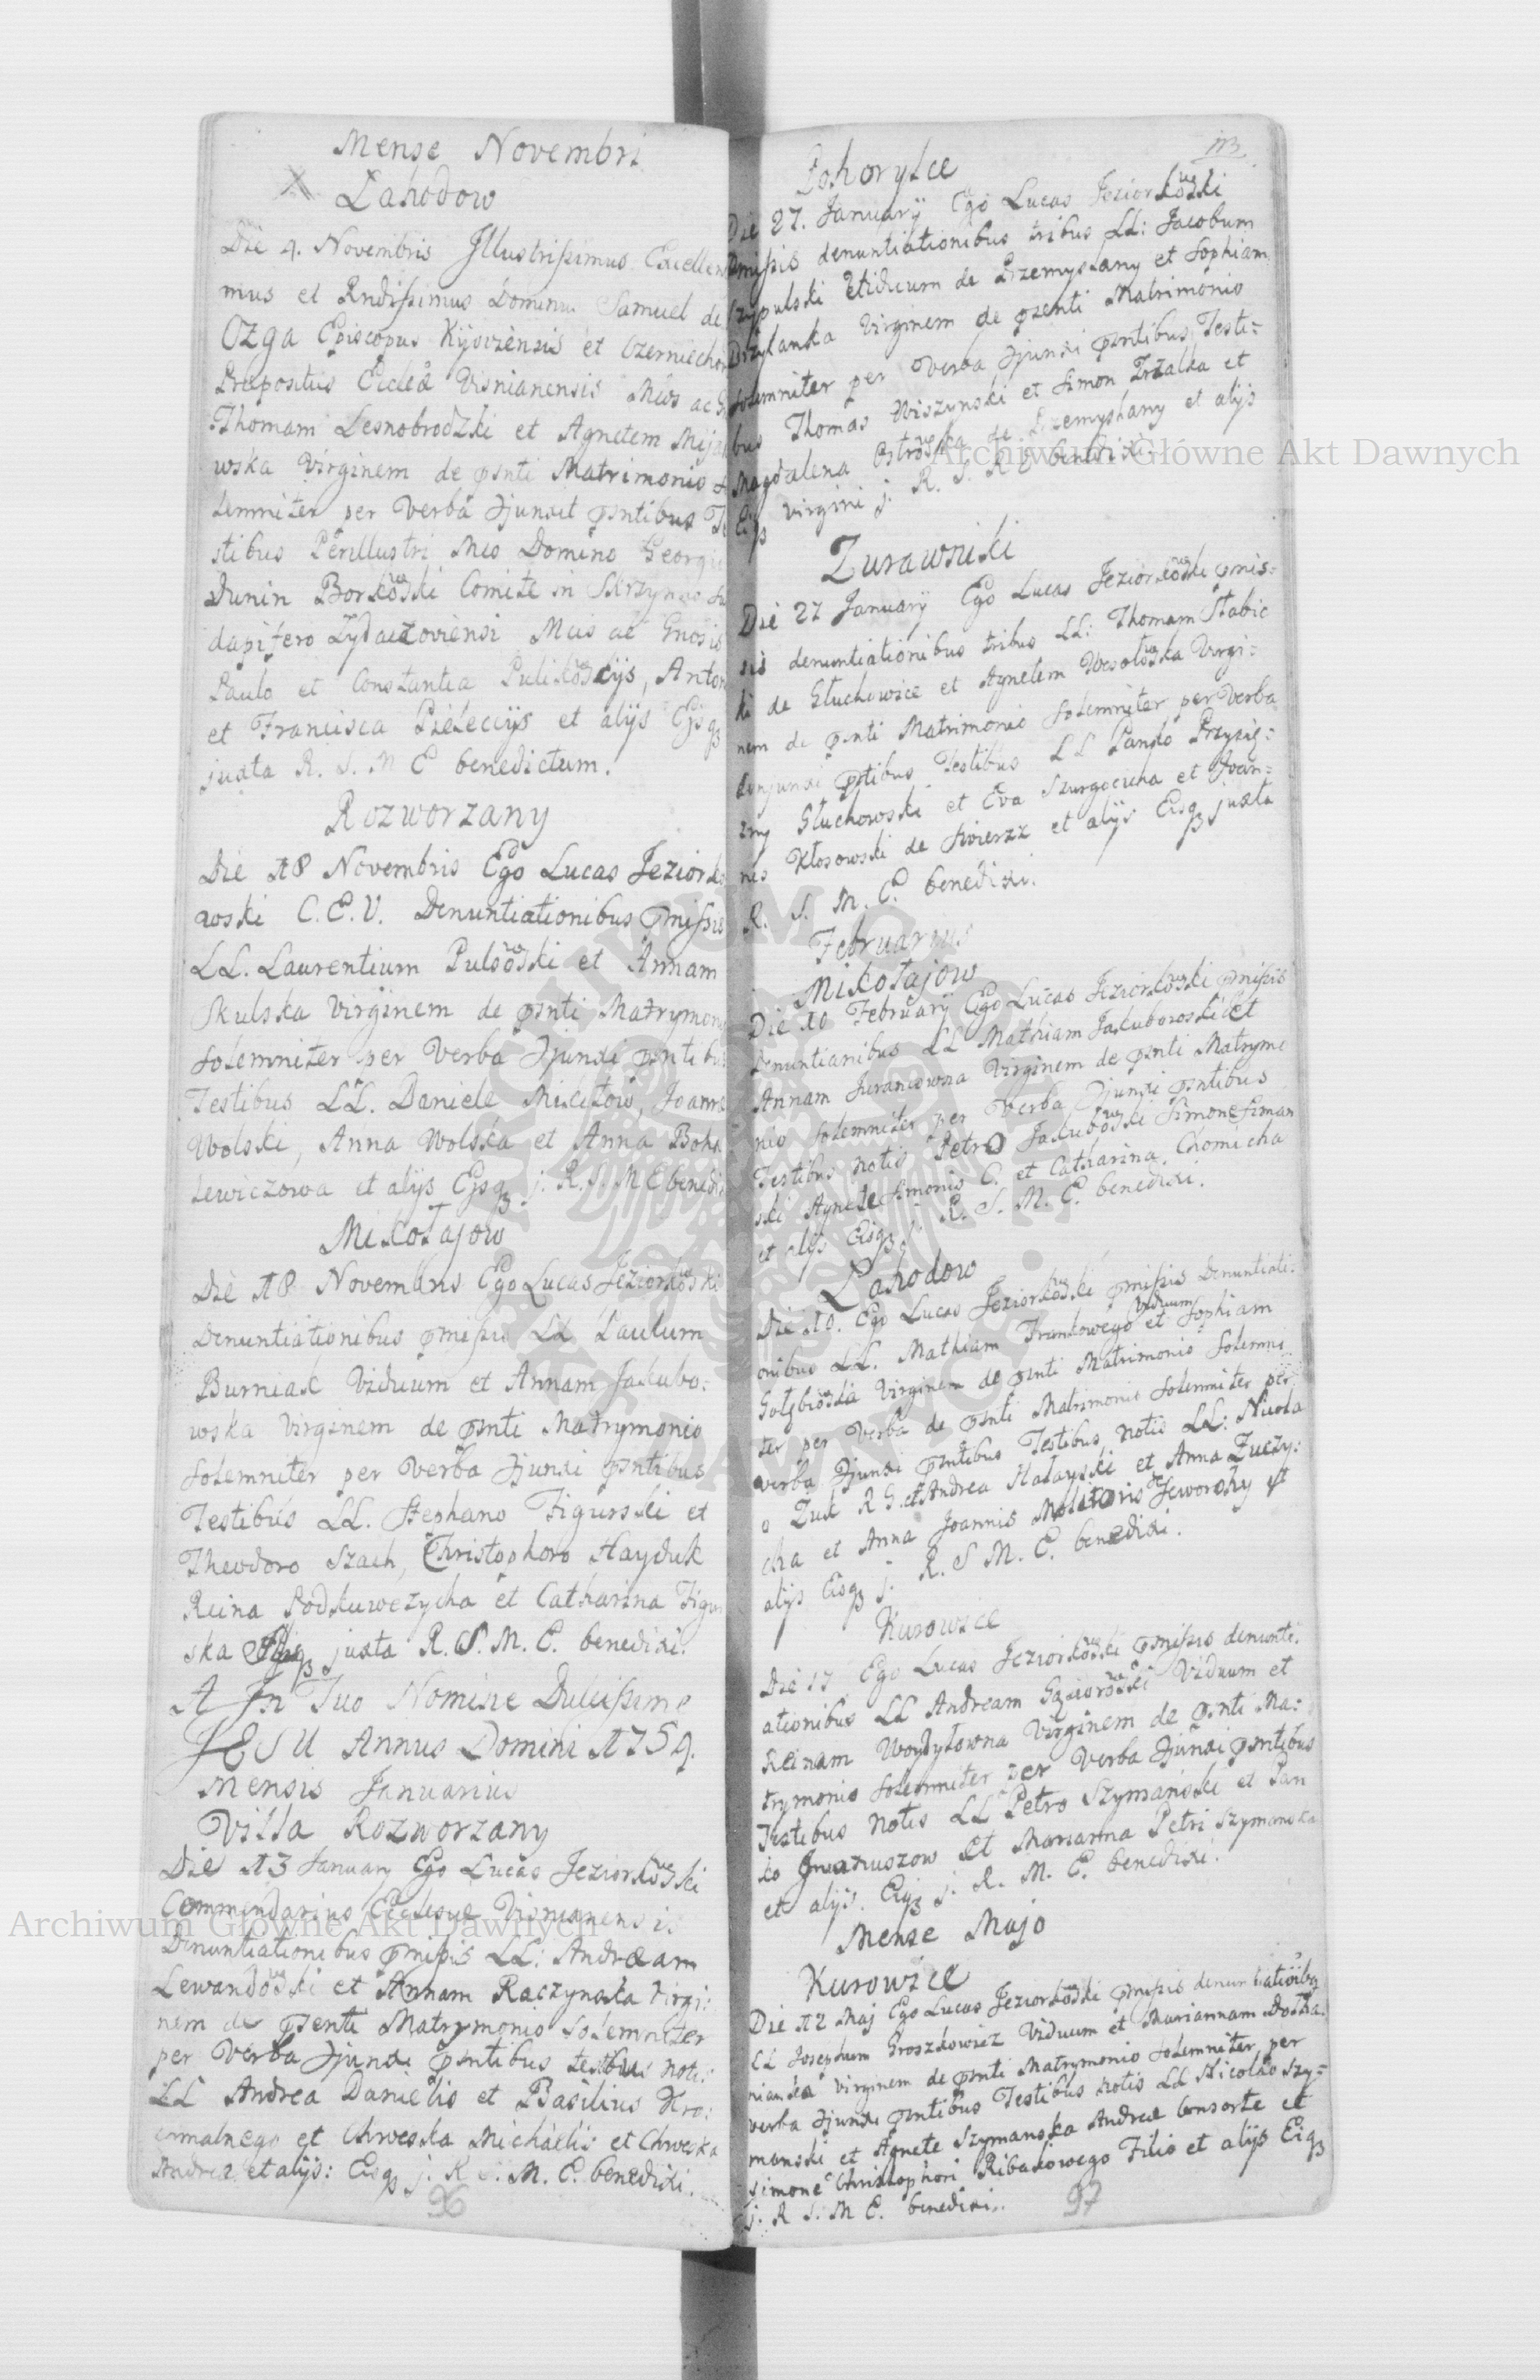 Mense Novembri
Lahodow
Die 4. Novembris Jllustrissimus Excellen
mus et Rndissimus Dominus Samuel de
Ozga Episcopus Kijoviensis et Czerniechov
Prepositus Eccleæ Visnianensis Mcos ac G
Thomam Lesnobrodzki et Agnetem Mija
wska Virginem de psnti Matrimonio so
lemniter per Verba Cjunxit psntibus Te
stibus Perillustri Mco Domino Georgio
Dunin Borkowski Comite in Skrzynno Su
dapifero Zydaczoviensi Mcis ac Gnosis
Paulo et Constantia Pulikowscÿs, Anton
et Francisca Pieleciÿs et alÿs Eisqz
juxta R. S. M E benedictum.
Rozworzany
Die 18 Novembris Ego Lucas Jeziorko
wski C. E. V. Denuntiationibus pmissis
LL. Laurentium Pulsowski et Annam
Skulska Virginem de psnti Matrymon
solemniter per Verba Cjunxi psntibus
Testibus LL. Daniele Mikitow, Joanne
Wolski, Anna Wolska et Anna Boha
lewiczowa et alÿs Eisqz j. R. S. M E benedi
Mikołajow
Die 18 Novembris Ego Lucas Jeziorkowski
Denuntiationibus pmissis LL Paulum
Burniak Viduum et Annam Jakubo:
wska Virginem de psnti Matrymonio
solemniter per Verba Cjunxi psntibus
Testibus LL. Stephano Figurski et
Theodoro Szach, Christophoro Hayduk
Reina Podkuwczycha et Catharina Figur
ska Eisqz juxta R. S. M. E. benedixi.
A Jn Tuo Nomine Dulcissime
JESU Annus Domini 1754.
Mensis Januarius
Villa Rozworzany
Die 13 January Ego Lucas Jeziorkowski
Commendarius Ecclesiæ Visnianensis
Denuntiationibus pmissis LL: Andream
Lewandowski et Annam Raczynska Virgi:
nem de psenti Matrymonio solemniter
per Verba Cjunxi psntibus testibus notis
LL Andrea Danielis et Basilius Kro:
chmalnego et Chweska Michaelis et Chweska
Andreæ et alÿs: Eisqz j. R S. M. E. benedixi.
96
113
Pohorylce
Die 27. Januarÿ Ego Lucas Jeziorkowski
pmissis denuntiationibus tribus LL: Jacobum
Czypulski Viduum de Przemyslany et Sophiam
Drzylanka Virginem de psenti Matrimonio
solemniter per Verba Cjunxi psntibus Testi=
bus Thomas Wiszynski et Simon Trzalka et
Magdalena Ostrowska de Przemyslany et alÿs
Eisqz virgini j. R. S. M E benedixi
Zurawniki
Die 27 Januarÿ Ego Lucas Jeziorkowski pmis=
sis denuntiationibus tribus LL: Thomam Stabic
ki de Głuchowice et Agnetem Wesołowska Virgi=
nem de psnti Matrimonio solemniter per Verba
Conjunxi psntibus Testibus LL Panko Przysięż=
my Głuchowski et Eva Szurgocicha et Joan=
nes Kłosowski de Swierzz et alÿs Eisqz juxta
R. S. M. E. benedixi.
Februarius
Mikołajow
Die 10 Februarÿ Ego Lucas Jeziorkowski pmissis
Denuntianibus LL Mathiam Jakubowski et
Annam Virginem de psnti Matrymo
nio solemniter per Verba Cjunxi psntibus
Testibus notis Petro Jakubowski Simone Siman
ski Agnete Simonis C. et Catharina Chomicha
et alÿs Eisqz j. R. S. M. E. benedixi.
Lahodow
Die 10. Ego Lucas Jeziorkowski pmissis Denuntiati.
onibus LL. Mathiam Frankowego Viduum et Sophiam
Gołębiowska Virginem de psnti Matrimonio Solemni
ter per Verba de psnti Matrimonio solemniter per
verba Cjunxi psntibus Testibus notis LL: Nicola
o Zuk R G. et Andrea Hałayski et Anna Zuczy:
cha et Anna Joannis Molitoris Jeworsky et
alÿs Eisqz j. R. S M. E. benedixi.
Kurowice
Die 17 Ego Lucas Jeziorkowski pmissis denunti.
ationibus LL Andream Gąsiorowski Viduum et
Reinam Woydyłowna Virginem de psnti Ma:
trymonio solemniter per Verba Cjunxi psntibus
Testibus notis LL Petro Szymanski et Pan
ko Jwaniuszow et Marianna Petri Szymanska
et alÿs. Eisqz j. R. M. E. benedixi.
Mense Majo
Kurowice
Die 12 Maj Ego Lucas Jeziorkowski pmissis denuntiationibus
LL Josephum Groszkowicz Viduum et Mariannam
Virginem de psnti Matrymonio solemniter per
verba Cjunxi psntibus Testibus notis LL Nicolao Szy=
manski et Agnete Szymanska Andreæ Consorte et
Simone Christophori Ribakowego Filio et alÿs Eisqz
j. R S. M E. benedixi.
97
Archiwum Główne Akt Dawnych
Archiwum Główne Akt Dawnych